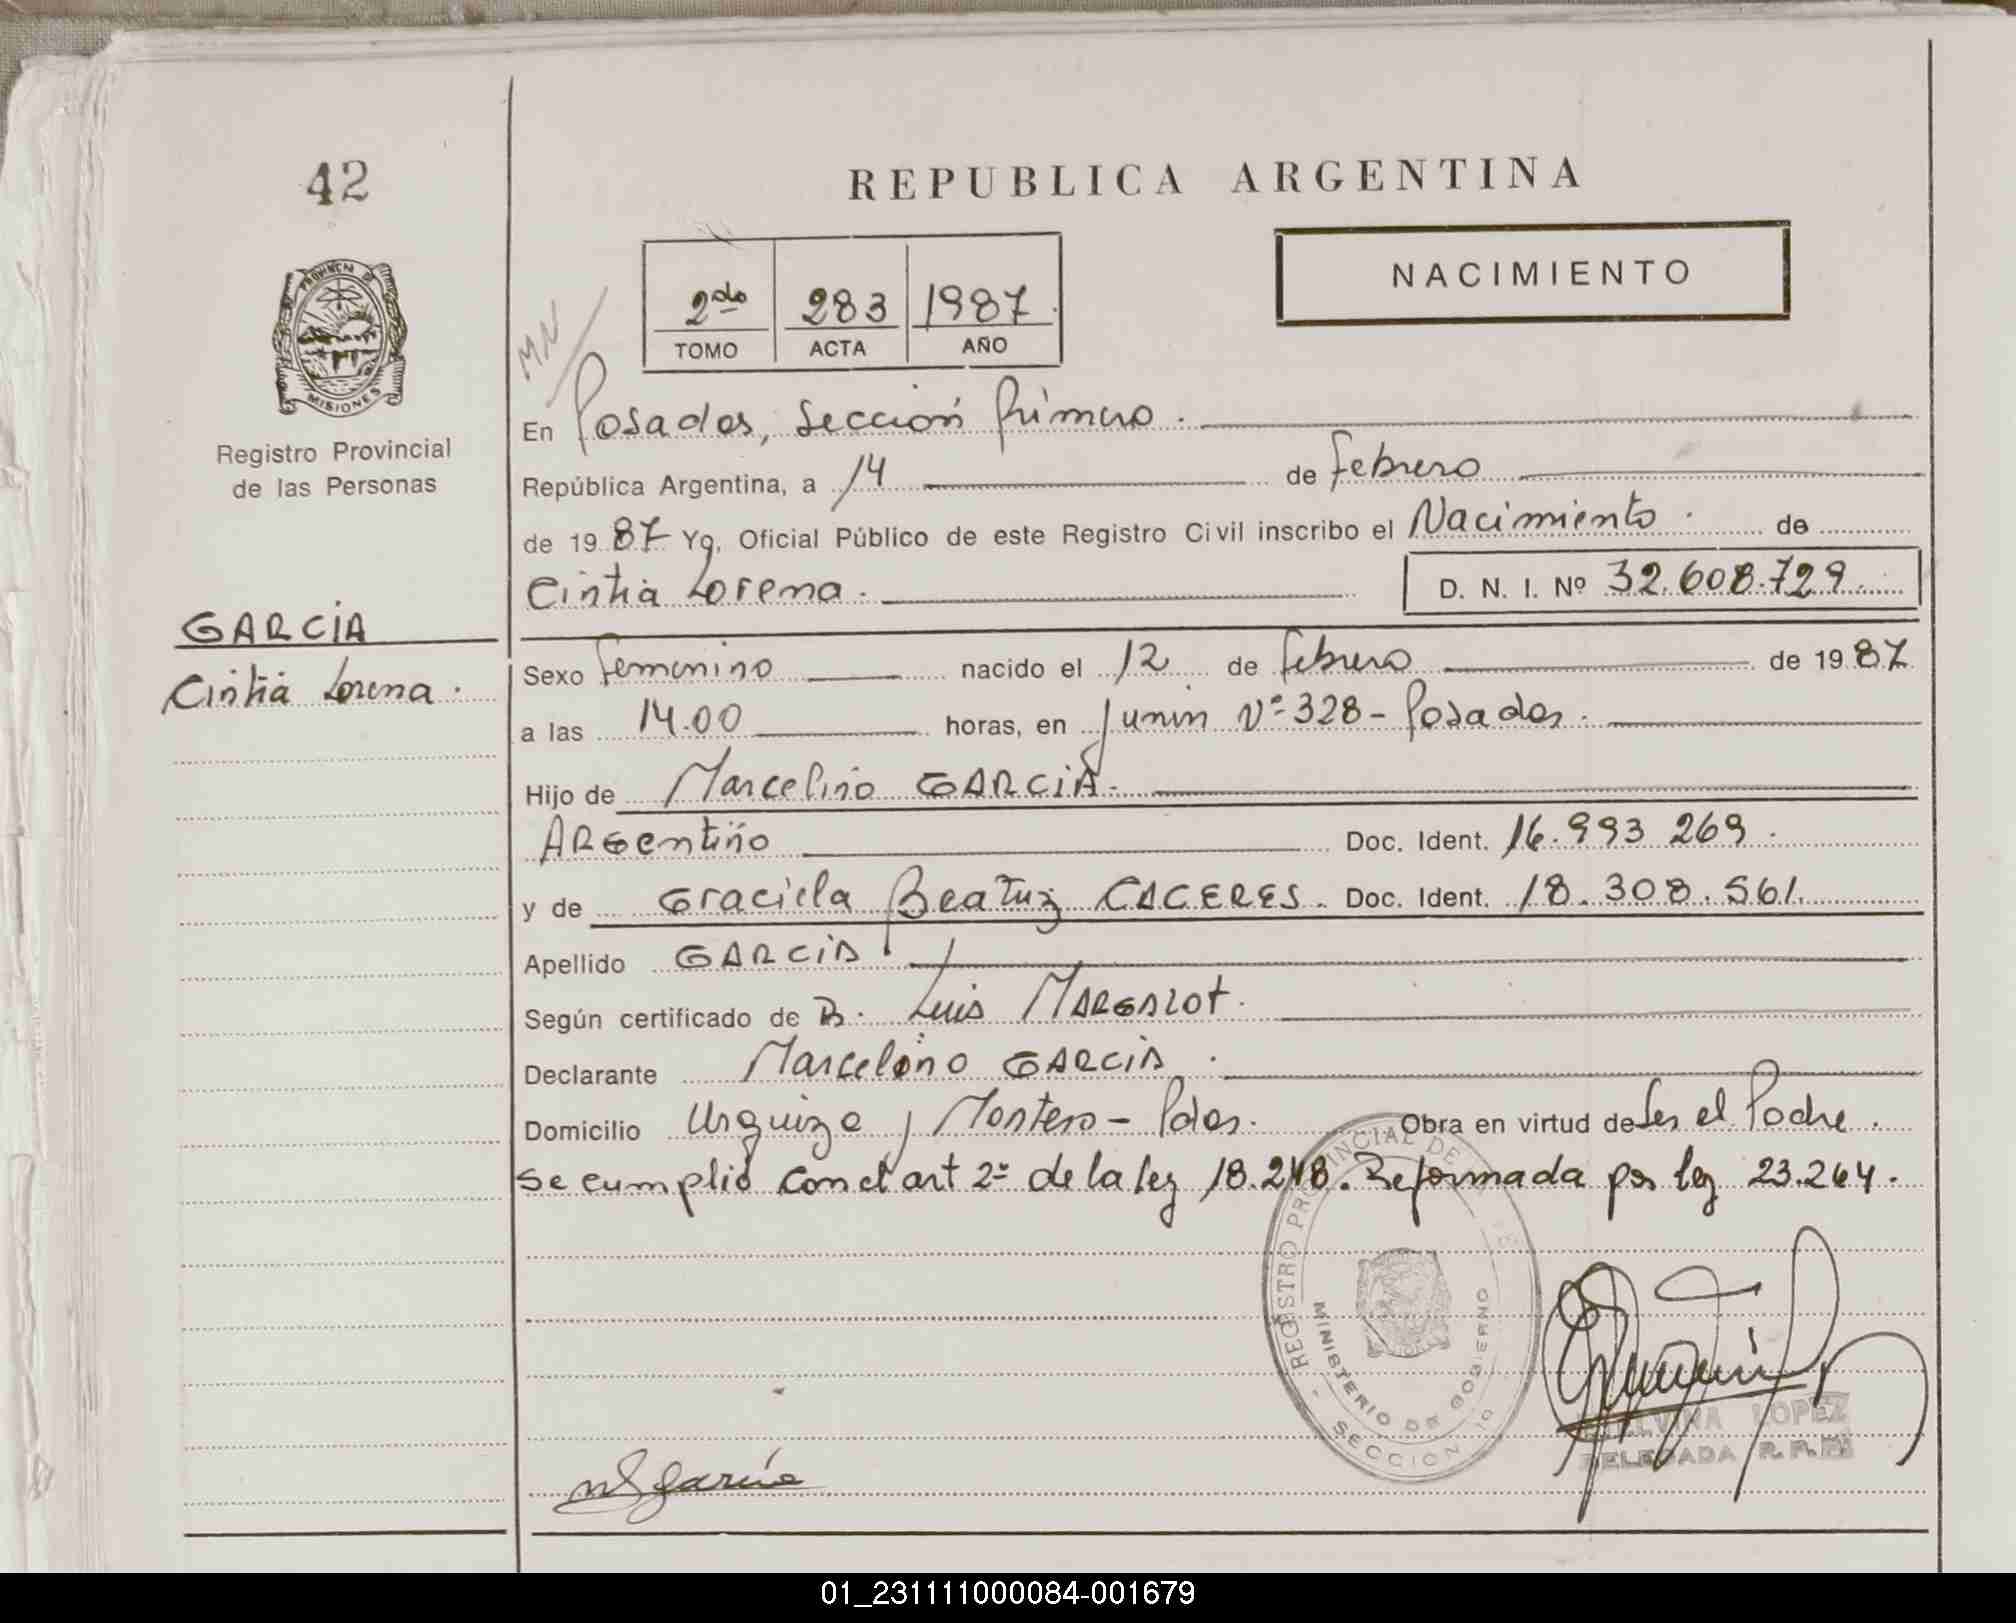 42
REPUBLICA ARGENTINA
NACIMIENTO
2do 283 1987
TOMO ACTA AÑO
MN
PROVINCIA DE
MISIONES
Registro Provincial
de las Personas
En Posadas, Sección Primera.
República Argentina, a 14 de Febrero
de 1987 Yo, Oficial Público de este Registro Civil inscribo el Nacimiento de
Cintia Lorena. D. N. I. Nº 32.608.729
GARCIA
Cintia Lorena.
Sexo Femenino nacido el 12 de Febrero de 1987
a las 14.00 horas, en Junin Nº 328 - Posadas.
Hijo de Marcelino GARCIA.
ARGentino Doc. Ident. 16.993 269.
y de Graciela Beatriz CACERES. Doc. Ident. 18.308.561.
Apellido GARCIA
Según certificado de Dr. Luis
Declarante Marcelino GARCIA.
Domicilio Urquiza y Montero - Pdas. Obra en virtud de Ser el Padre.
Se cumplió con el art 2º de la ley 18.248. Reformada por ley 23.264.
REGISTRO PROVINCIAL DE
MINISTERIO DE GOBIERNO
SECCION 1º
LOPEZ
DELEGADA R. P. P.
M Garcia
01_231111000084-001679